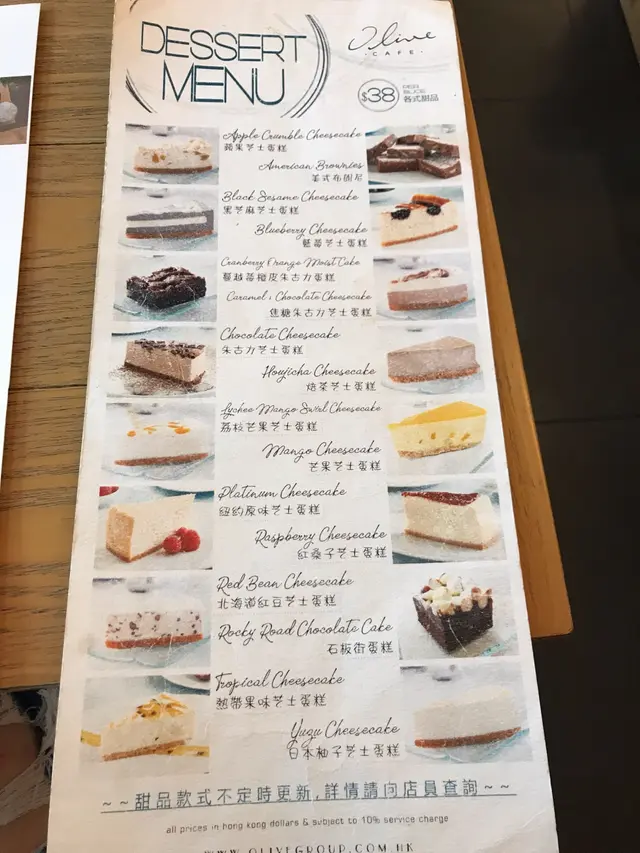 DESSERT
MENU
Olive
·CAFE·
$38
PER
SLICE
各式甜品
Apple Crumble Cheesecake
蘋果芝士蛋糕
American Brownies
美式布朗尼
Black Sesame Cheesecake
黑芝麻芝士蛋糕
Blueberry Cheesecake
藍莓芝士蛋糕
Cranberry Orange Moist Cake
蔓越莓橙皮朱古力蛋糕
Caramel & Chocolate Cheesecake
焦糖朱古力芝士蛋糕
Chocolate Cheesecake
朱古力芝士蛋糕
Houjicha Cheesecake
焙茶芝士蛋糕
Lychee Mango Swirl Cheesecake
荔枝芒果芝士蛋糕
Mango Cheesecake
芒果芝士蛋糕
Platinum Cheesecake
紐約原味芝士蛋糕
Raspberry Cheesecake
紅桑子芝士蛋糕
Red Bean Cheesecake
北海道紅豆芝士蛋糕
Rocky Road Chocolate Cake
石板街蛋糕
Tropical Cheesecake
熱帶果味芝士蛋糕
Yuzu Cheesecake
日本柚子芝士蛋糕
~~甜品款式不定時更新,詳情請向店員查詢~~
all prices in hong kong dollars & subject to 10% service charge
WWW.OLIVEGROUP.COM.HK